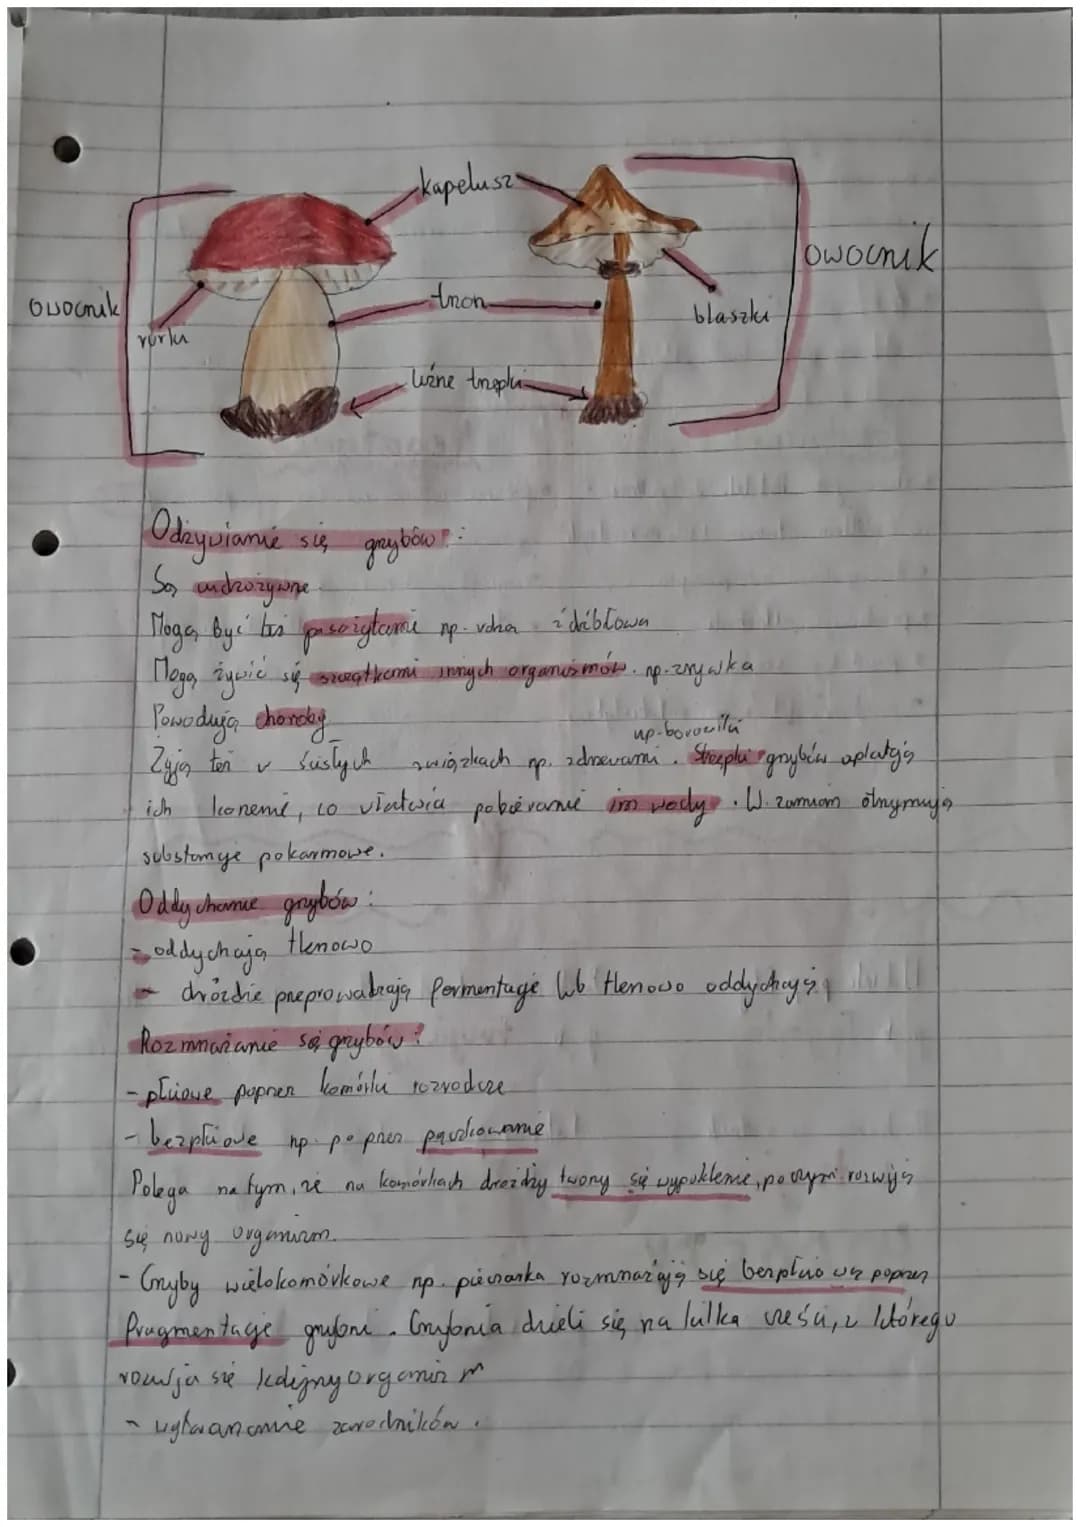 kapelusz
owocnik
owocnik
trzon
blaszki
rurki
luźne strzępki
Odżywianie się grzybów:
Są cudzożywne
Mogą być też pasożytami np. rdza źdźbłowa
Mogą żywić się szczątkami innych organizmów. np.
Powodują choroby
np. borowiki
Żyją też w ścisłych związkach np. z drzewami. Strzępki grzybów oplatają
ich korzenie, co ułatwia pobieranie im wody. W zamian otrzymują
substancje pokarmowe.
Oddychanie grzybów:
- oddychają tlenowo
- drożdże przeprowadzają fermentację lub tlenowo oddychają
Rozmnażanie się grzybów:
- płciowe poprzez komórki rozrodcze
- bezpłciowe np. poprzez pączkowanie
Polega na tym, że na komórkach drożdży tworzy się wypuklenie, po czym rozwija
się nowy organizm.
- Grzyby wielokomórkowe np. pieczarka rozmnażają się bezpłciowo poprzez
fragmentację grzybni. Grzybnia dzieli się na kilka części, z którego
rozwija się kolejny organizm
- wytwarzanie zarodników.